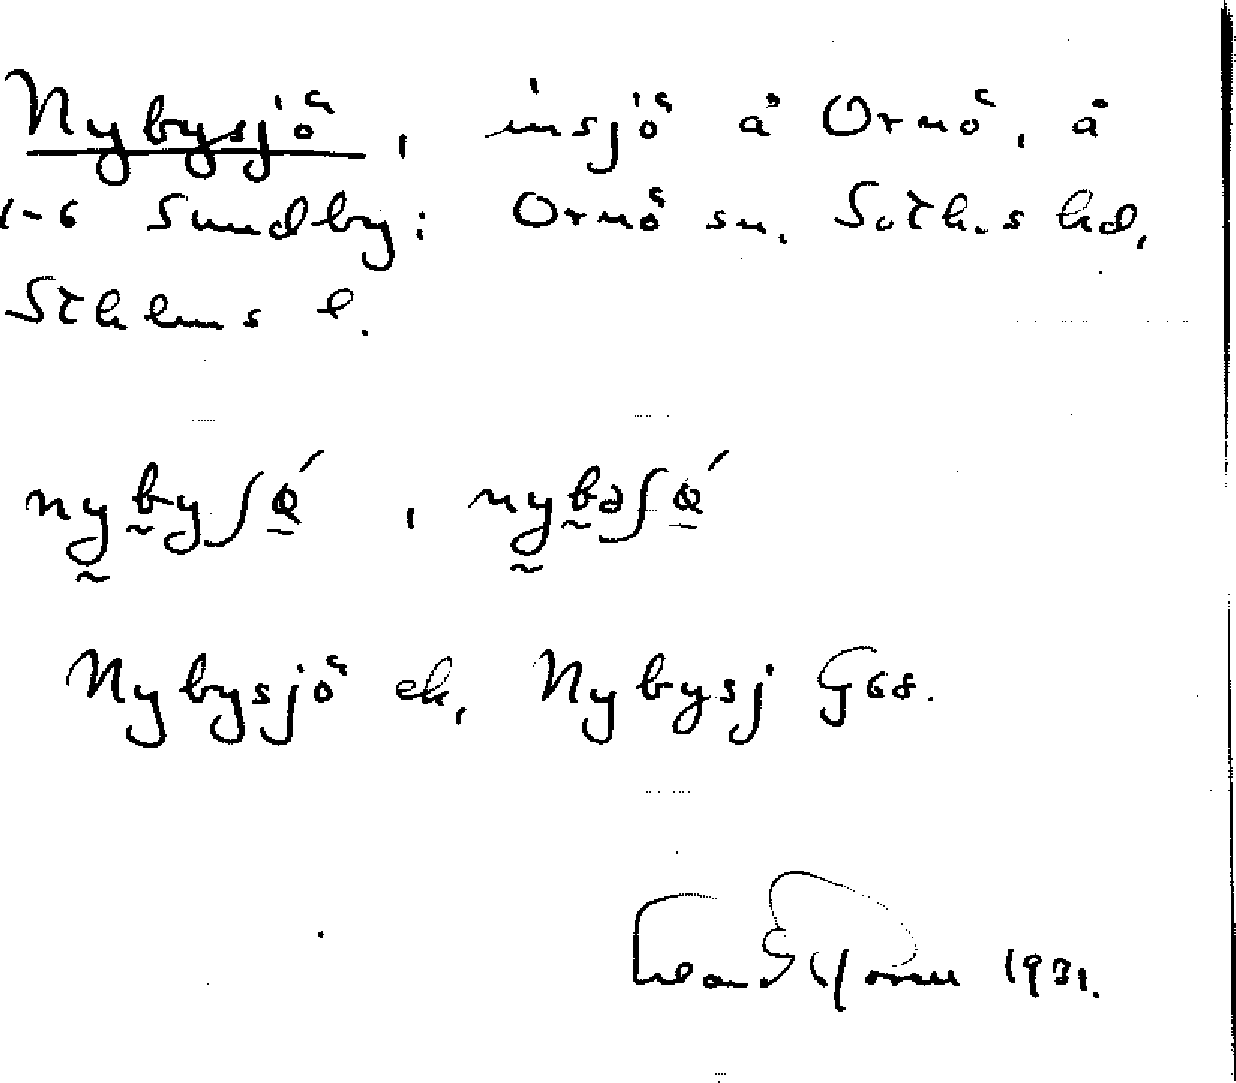 Nybysjö, insjö å Ornö, å
1-6 Sundby; Ornö sn, Soth.s hd,
Sthlms l.
nybyʃö́, nybəʃö́
Nybysjö ek, Nybysj G68.
1931.